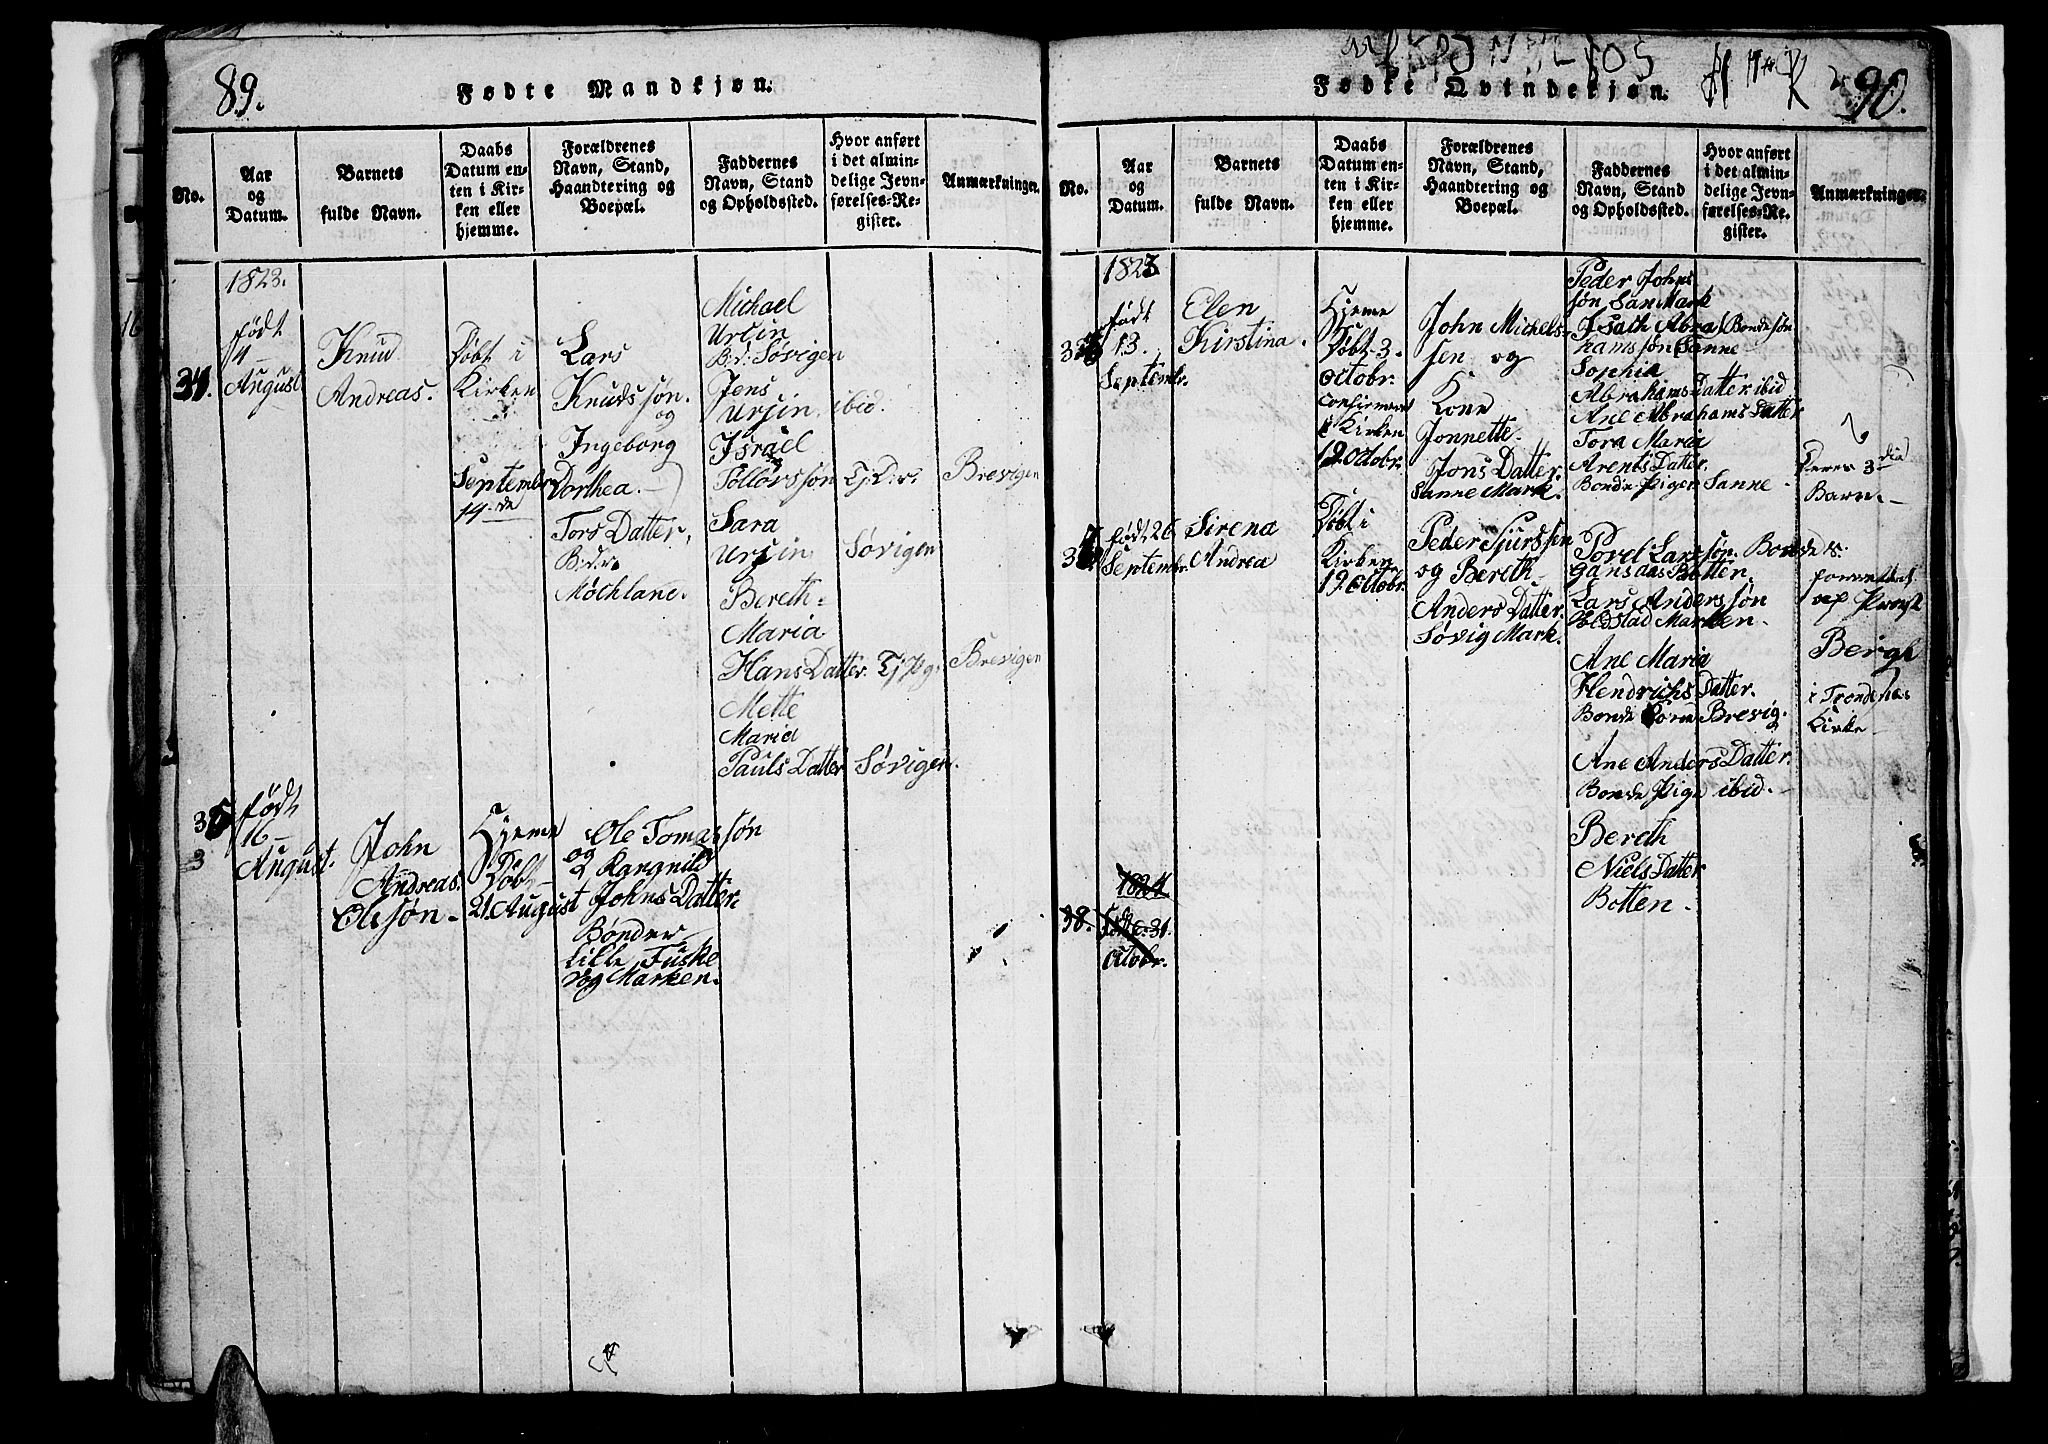 89.
Fødte Mandkjøn.
No.
Aar
og
Datum.
Barnets
fulde Navn.
Daabs
Datum en-
ten i Kir-
ken eller
hjemme.
Forældrenes
Navn, Stand,
Haandtering og
Boepæl.
Faddernes
Navn, Stand
og Opholdssted.
Hvor anført
i det almin-
delige Jevn-
førelses-Re-
gister.
Anmærkninger.
34.
1823.
født
4
August
Knud
Andreas.
Døbt i
Kirken
September
14de
Lars
Knudssøn.
og
Ingeborg
Dorthea.
Tors Datter,
B:d:r
Møchland.
Michael
Ursin
B:d: Søvigen
Jens
Ursin. ibid.
Israel
Tollørssøn Tj:D:r. Brevigen
Sara
Ursin Søvigen
Bereth
Maria
Hans Datter. Tj Pg: Brevigen
Mette
Maria
Pauls Datter Søvigen.
35
3
født
16
August.
John
Andreas.
Olesøn
Hjeme
Døbt
21 August
Ole Tomassøn
og
Rangnild
Johns Datter.
Bønder
lille Fuske
vog Marken.
90.
Fødte Qvindekjøn.
No.
Aar
og
Datum.
Barnets
fulde Navn.
Daabs
Datum en-
ten i Kir-
ken eller
hjemme.
Forældrenes
Navn, Stand,
Haandtering og
Boepæl.
Faddernes
Navn, Stand
og Opholdssted.
Hvor anført
i det almin-
delige Jevn-
førelses-Re-
gister.
Anmærkninger.
1823
født
13.
Septembr.
Elen
Kirstina.
Hjeme
Døbt 3.
octobr.
Kirken
12 octobr.
John Michels-
sen og
Kone
Jonnette
Jons Datter
Sanne Mark.
Peder Johns
søn San Mark
Isach Abra Bonde søn
hamssøn Sanne
Sophia
Abrahams Datter ibid
Ane Abrahams Datter
Tora Maria
Arents Datter.
Bonde Piger Sanne
3die
Barn.
født 26
Septembr.
Sirena
Andrea
Døbt i
Kirken
12 Octobr.
Peder Sjurssen
og Bereth
Anders Datter.
Søvig Mark.
Povel Larssøn. Bonde
Botten.
Lars Anderssøn
Marken.
Ane Maria
Hendrichs Datter.
Bonde Brevig.
Ane Anders Datter.
Bonde Pige ibid.
Bereth
Niels Datter
Botten.
af Provst
Berg
i Trondenes
Kirke
1824
38.
31.
Octobr.